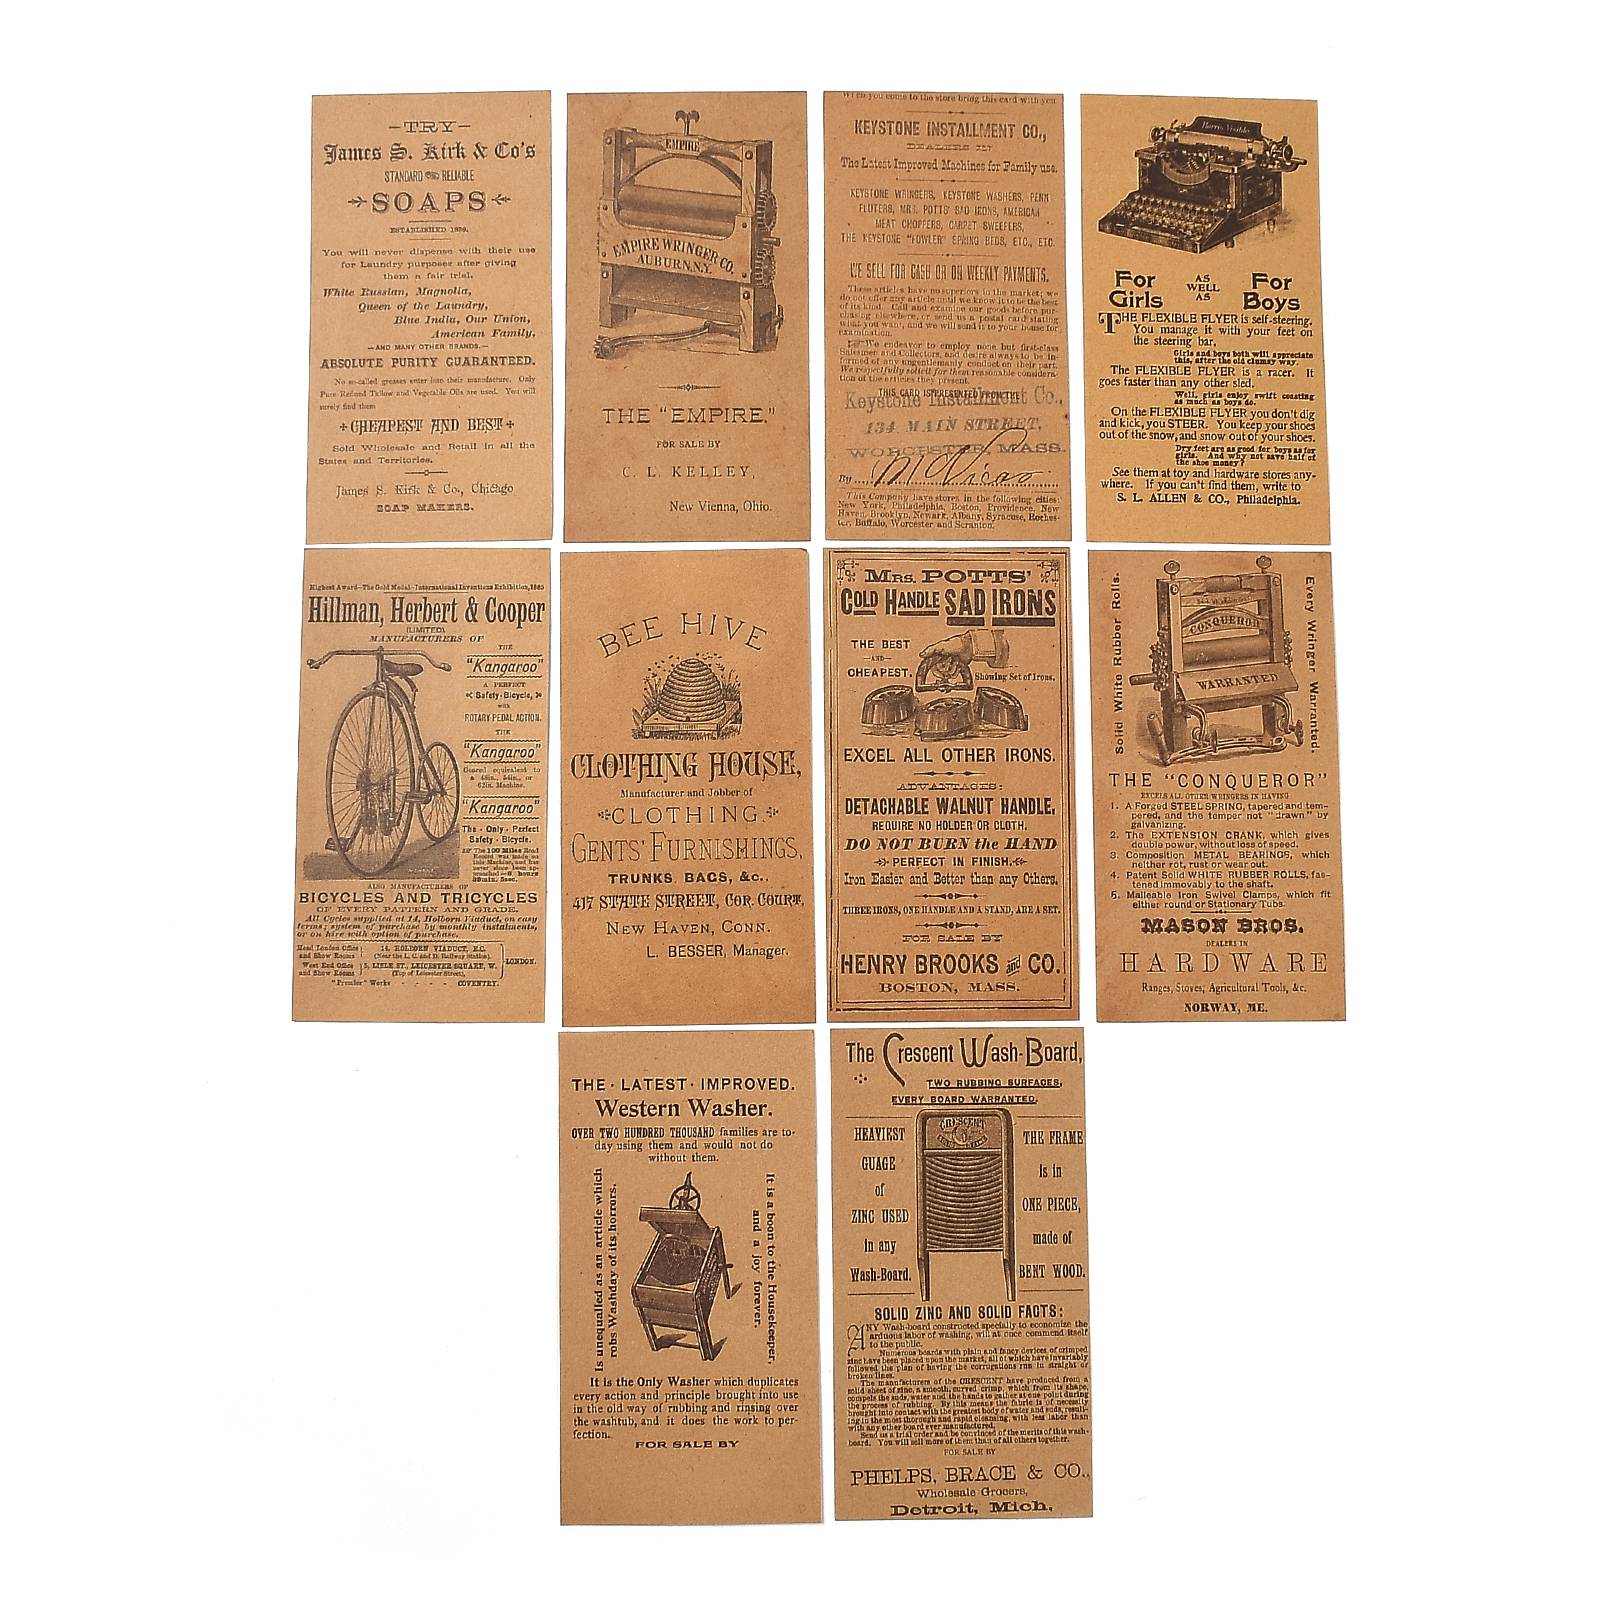 —TRY—
James S. Kirk & Co's
STANDARD AND RELIABLE
SOAPS
ESTABLISHED 1839.
You will never dispense with their use
for Laundry purposes after giving
them a fair trial.
White Russian, Magnolia,
Queen of the Laundry,
Blue India, Our Union,
American Family,
—AND MANY OTHER BRANDS.—
ABSOLUTE PURITY GUARANTEED.
No so-called greases enter into their manufacture. Only
Pure Refined Tallow and Vegetable Oils are used. You will
surely find them
CHEAPEST AND BEST
Sold Wholesale and Retail in all the
States and Territories.
James S. Kirk & Co., Chicago
SOAP MAKERS.
EMPIRE
EMPIRE WRINGER CO.
AUBURN.N.Y.
THE "EMPIRE."
FOR SALE BY
C. L. KELLEY,
New Vienna, Ohio.
When you come to the store bring this card with you
KEYSTONE INSTALLMENT CO.,
DEALERS IN
The Latest Improved Machines for Family use.
KEYSTONE WRINGERS, KEYSTONE WASHERS, PENN
FLUTERS, MRS. POTTS' SAD IRONS, AMERICAN
MEAT CHOPPERS, CARPET SWEEPERS,
THE KEYSTONE "FOWLER" SPRING BEDS, ETC., ETC.
WE SELL FOR CASH OR ON WEEKLY PAYMENTS.
These articles have no superiors in the market; we
do not offer any article until we know it to be the best
of its kind. Call and examine our goods before pur-
chasing elsewhere, or send us a postal card stating
what you want, and we will send it to your house for
examination.
We endeavor to employ none but first-class
Salesmen and Collectors, and desire always to be in-
formed of any ungentlemanly conduct on their part.
We respectfully solicit for them reasonable considera-
tion of the articles they present.
THIS CARD IS PRESENTED FROM THE
Keystone Installment Co.,
134 MAIN STREET,
WORCESTER, MASS.
By
This Company have stores in the following cities:
New York, Philadelphia, Boston, Providence, New
Haven, Brooklyn, Newark, Albany, Syracuse, Roches-
ter, Buffalo, Worcester and Scranton.
Harris Visible
For Girls
AS WELL AS
For Boys
THE FLEXIBLE FLYER is self-steering.
You manage it with your feet on
the steering bar.
Girls and boys both will appreciate
this, after the old clumsy way.
The FLEXIBLE FLYER is a racer. It
goes faster than any other sled.
Well, girls enjoy swift coasting
as much as boys do.
On the FLEXIBLE FLYER you don't dig
and kick, you STEER. You keep your shoes
out of the snow, and snow out of your shoes.
Dry feet are as good for boys as for
girls. And why not save half of
the shoe money?
See them at toy and hardware stores any-
where. If you can't find them, write to
S. L. ALLEN & CO., Philadelphia.
Highest Award—The Gold Medal—International Inventions Exhibition, 1885
Hillman, Herbert & Cooper
(LIMITED)
MANUFACTURERS OF
THE
"Kangaroo"
A PERFECT
Safety-Bicycle,
with
ROTARY PEDAL ACTION.
THE
"Kangaroo"
Geared equivalent to
a 48in., 54in., or
62in. Machine.
"Kangaroo"
The · Only · Perfect
Safety · Bicycle.
The 100 Miles Road
Record was made on
this Machine, and has
never since been ap-
ALSO MANUFACTURERS OF
BICYCLES AND TRICYCLES
OF EVERY PATTERN AND GRADE.
All Cycles supplied at 14, Holborn Viaduct, on easy
terms; system of purchase by monthly instalments,
or on hire with option of purchase.
Head London Office and Show Rooms
14, HOLBORN VIADUCT, E.C.
(Near the L. C. and D. Railway Station).
West End Office and Show Rooms
5, LISLE ST., LEICESTER SQUARE, W.
(Top of Leicester Street),
LONDON.
"Premier" Works - - - - COVENTRY.
BEE HIVE
CLOTHING HOUSE,
Manufacturer and Jobber of
CLOTHING,
GENTS' FURNISHINGS,
TRUNKS, BAGS, &c.,
417 STATE STREET, COR. COURT,
NEW HAVEN, CONN.
L. BESSER, Manager.
MRS. POTTS'
COLD HANDLE SAD IRONS
THE BEST
—AND—
CHEAPEST.
Showing Set of Irons.
EXCEL ALL OTHER IRONS.
ADVANTAGES:
DETACHABLE WALNUT HANDLE,
REQUIRE NO HOLDER OR CLOTH,
DO NOT BURN the HAND
PERFECT IN FINISH.
Iron Easier and Better than any Others.
THREE IRONS, ONE HANDLE AND A STAND, ARE A SET.
FOR SALE BY
HENRY BROOKS and CO.
BOSTON, MASS.
Solid White Rubber Rolls.
Every Wringer Warranted.
CONQUEROR
WARRANTED
THE "CONQUEROR"
EXCELS ALL OTHER WRINGERS IN HAVING
1. A Forged STEEL SPRING, tapered and tem-
pered, and the temper not "drawn" by
galvanizing.
2. The EXTENSION CRANK, which gives
double power, without loss of speed.
3. Composition METAL BEARINGS, which
neither rot, rust or wear out.
4. Patent Solid WHITE RUBBER ROLLS, fas-
tened immovably to the shaft.
5. Malleable Iron Swivel Clamps, which fit
either round or Stationary Tubs.
MASON BROS.
DEALERS IN
HARDWARE
Ranges, Stoves, Agricultural Tools, &c.
NORWAY, ME.
THE · LATEST · IMPROVED.
Western Washer.
OVER TWO HUNDRED THOUSAND families are to-
day using them and would not do
without them.
Is unequalled as an article which
robs Washday of its horrors.
It is a boon to the Housekeeper,
and a joy forever.
It is the Only Washer which duplicates
every action and principle brought into use
in the old way of rubbing and rinsing over
the washtub, and it does the work to per-
fection.
FOR SALE BY
The Crescent Wash-Board,
TWO RUBBING SURFACES,
EVERY BOARD WARRANTED.
CRESCENT
HEAVIEST
GUAGE
of
ZINC USED
in any
Wash-Board.
THE FRAME
is in
ONE PIECE,
made of
BENT WOOD.
SOLID ZINC AND SOLID FACTS:
ANY Wash-board constructed specially to economize the
arduous labor of washing, will at once commend itself
to the public.
Numerous boards with plain and fancy devices of crimped
zinc have been placed upon the market, all of which have invariably
followed the plan of having the corrugations run in straight or
broken lines.
The manufacturers of the CRESCENT have produced from a
solid sheet of zinc, a smooth, curved crimp, which from its shape,
compels the suds, water and the hands to gather at one point during
the process of rubbing. By this means the fabric is of necessity
brought into contact with the greatest body of water and suds, result-
ing in the most thorough and rapid cleansing, with less labor than
with any other board ever manufactured.
Send us a trial order and be convinced of the merits of this wash-
board. You will sell more of them than of all others together.
FOR SALE BY
PHELPS, BRACE & CO.,
Wholesale Grocers,
Detroit, Mich.